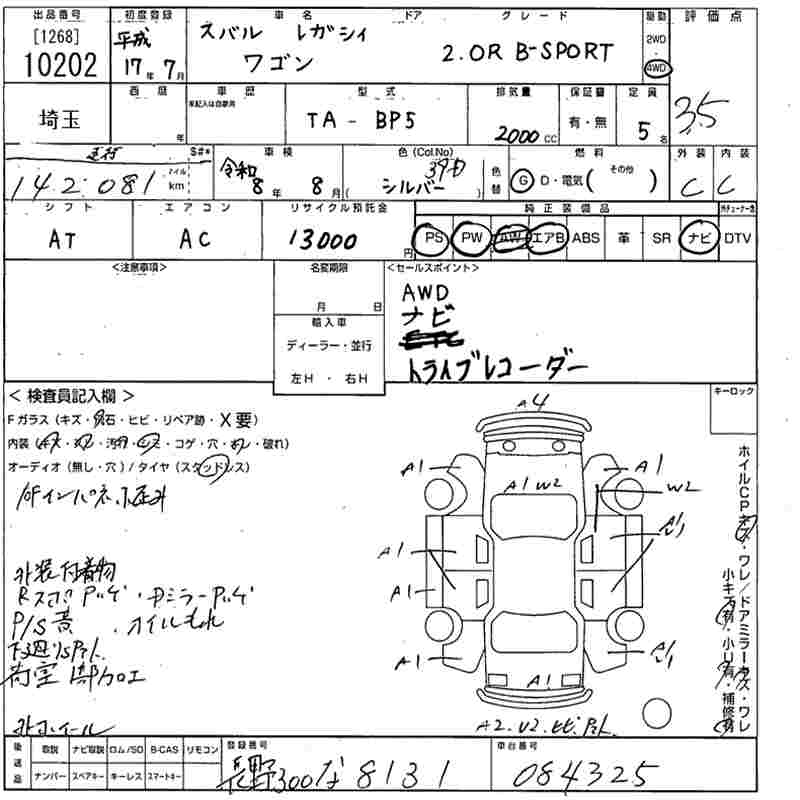 出品番号 初度登録 車名 ドア グレード 駆動 評価点
[1268] 10202
平成 17年 7月
スバル レガシィ
ワゴン
2.0R B-SPORT
2WD
4WD
西暦 年
車歴
型式 排気量 保証書 定員
埼玉
TA - BP5
2000 CC
有・無
5名
3.5
走行 S#* 車検 色(Col.No) 色替 燃料 外装 内装
142.081 マイル km
令和 8年 8月
シルバー
G D・電気( その他 )
C C
シフト エアコン リサイクル預託金 純正装備品
AT AC 13000円
PS PW AW エアB ABS 革 SR ナビ DTV
<注意事項> 名変期限 <セールスポイント>
月 日
輸入車
ディーラー・並行
左H ・ 右H
AWD
ナビ
ETC
ドライブレコーダー
キーロック
< 検査員記入欄 >
Fガラス(キズ・飛石・ヒビ・リペア跡・X要)
内装(キズ・汚れ・コゲ・穴・破れ)
オーディオ(無し・穴)/タイヤ(スタッドレス)
外装付着物
P/S音 ・オイルもれ
荷室 一部カロエ
外ホイール
A4
A1 A1
A1 W2 W2
A1
A1
A1
A1
A2.U2.ヒビ.
ホイルCPキズ・ワレ/ドアミラーキズ・ワレ
小キズ有・小U有・補修有
後送品 取説 ナビ取説 ロム/SD B-CAS リモコン
ナンバー スペアキー キーレス スマートキー
登録番号
長野300な8131
車台番号
084325